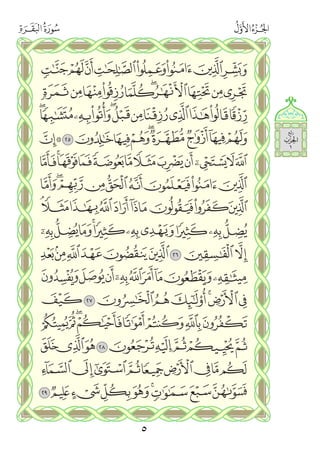 سُورَةُ البَقَرَةِ
الجُزْءُ الأَوَّلُ
وَبَشِّرِ ٱلَّذِينَ ءَامَنُوا۟ وَعَمِلُوا۟ ٱلصَّـٰلِحَـٰتِ أَنَّ لَهُمْ جَنَّـٰتٍ
تَجْرِى مِن تَحْتِهَا ٱلْأَنْهَـٰرُ ۖ كُلَّمَا رُزِقُوا۟ مِنْهَا مِن ثَمَرَةٍ
رِّزْقًا ۙ قَالُوا۟ هَـٰذَا ٱلَّذِى رُزِقْنَا مِن قَبْلُ ۖ وَأُتُوا۟ بِهِۦ مُتَشَـٰبِهًا ۖ
وَلَهُمْ فِيهَآ أَزْوَٰجٌ مُّطَهَّرَةٌ ۖ وَهُمْ فِيهَا خَـٰلِدُونَ ٢٥ ۞ إِنَّ
ٱللَّهَ لَا يَسْتَحْىِۦٓ أَن يَضْرِبَ مَثَلًا مَّا بَعُوضَةً فَمَا فَوْقَهَا ۚ فَأَمَّا
ٱلَّذِينَ ءَامَنُوا۟ فَيَعْلَمُونَ أَنَّهُ ٱلْحَقُّ مِن رَّبِّهِمْ ۖ وَأَمَّا
ٱلَّذِينَ كَفَرُوا۟ فَيَقُولُونَ مَاذَآ أَرَادَ ٱللَّهُ بِهَـٰذَا مَثَلًا ۘ
يُضِلُّ بِهِۦ كَثِيرًا وَيَهْدِى بِهِۦ كَثِيرًا ۚ وَمَا يُضِلُّ بِهِۦٓ
إِلَّا ٱلْفَـٰسِقِينَ ٢٦ ٱلَّذِينَ يَنقُضُونَ عَهْدَ ٱللَّهِ مِنۢ بَعْدِ
مِيثَـٰقِهِۦ وَيَقْطَعُونَ مَآ أَمَرَ ٱللَّهُ بِهِۦٓ أَن يُوصَلَ وَيُفْسِدُونَ
فِى ٱلْأَرْضِ ۚ أُو۟لَـٰٓئِكَ هُمُ ٱلْخَـٰسِرُونَ ٢٧ كَيْفَ
تَكْفُرُونَ بِٱللَّهِ وَكُنتُمْ أَمْوَٰتًا فَأَحْيَـٰكُمْ ۖ ثُمَّ يُمِيتُكُمْ
ثُمَّ يُحْيِيكُمْ ثُمَّ إِلَيْهِ تُرْجَعُونَ ٢٨ هُوَ ٱلَّذِى خَلَقَ
لَكُم مَّا فِى ٱلْأَرْضِ جَمِيعًا ثُمَّ ٱسْتَوَىٰٓ إِلَى ٱلسَّمَآءِ
فَسَوَّىٰهُنَّ سَبْعَ سَمَـٰوَٰتٍ ۚ وَهُوَ بِكُلِّ شَىْءٍ عَلِيمٌ ٢٩
٥